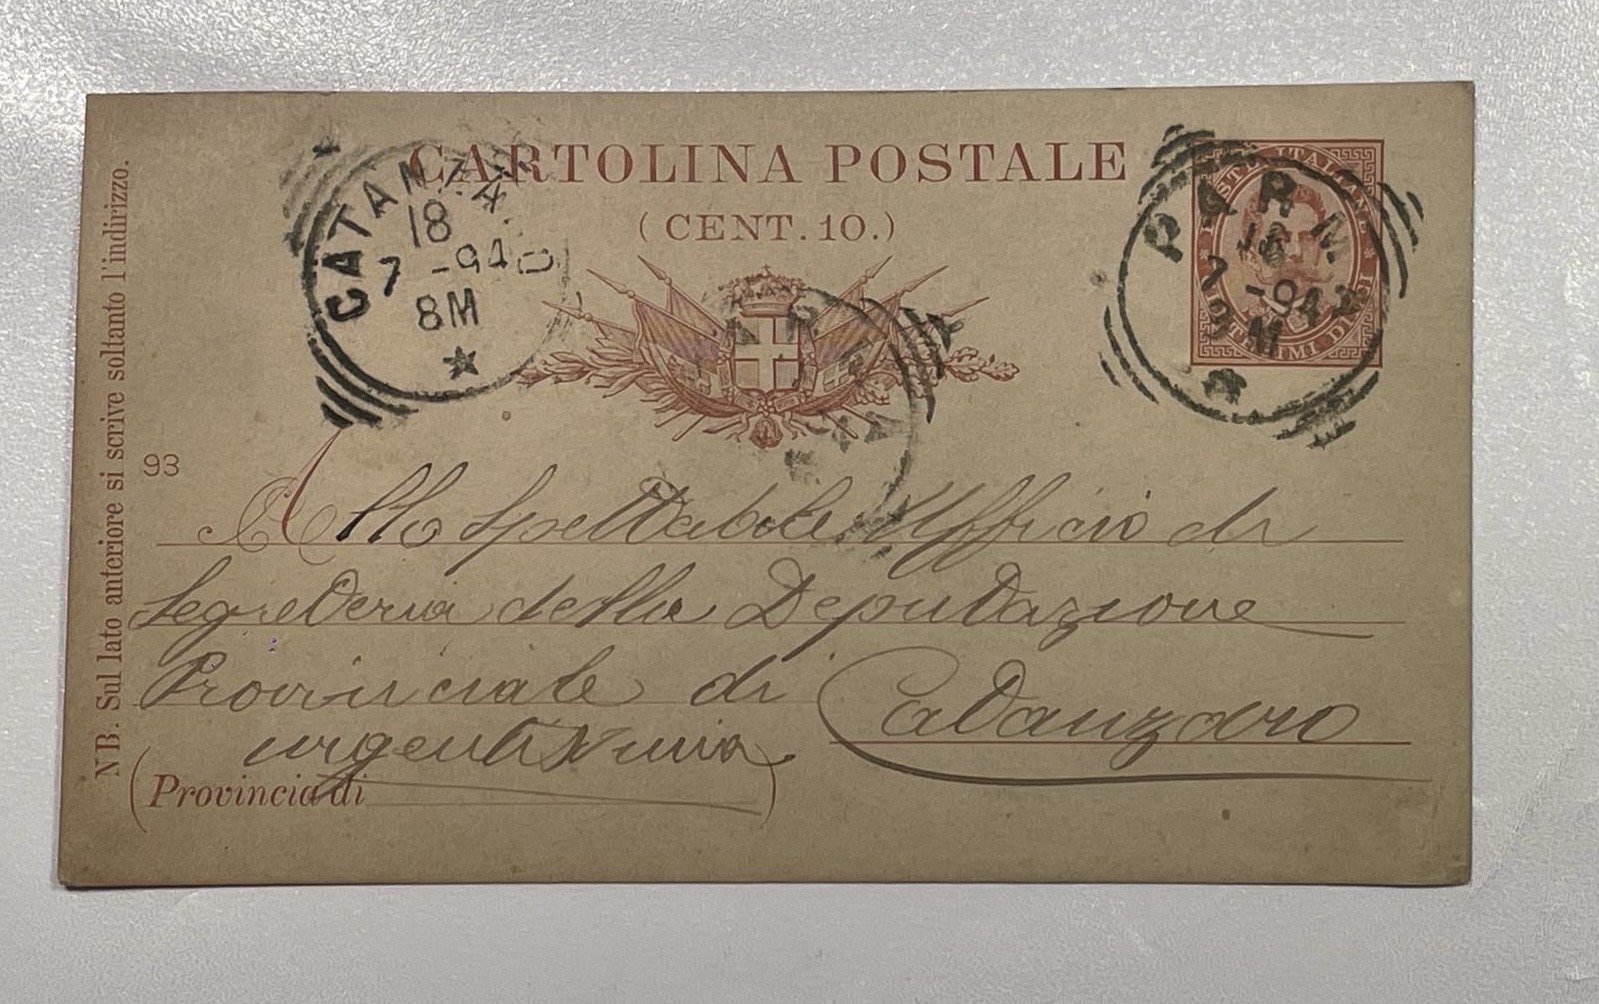 CARTOLINA POSTALE
(CENT. 10.)
CATANZA
18
7 -94
8M
PARM
7 -94
M
POSTE ITALIANE
DIECI
NB. Sul lato anteriore si scrive soltanto l'indirizzo.
93
Allo Spettabile Ufficio di
Segreteria della Deputazione
Provinciale di Catanzaro
urgentissima
(Provincia di )